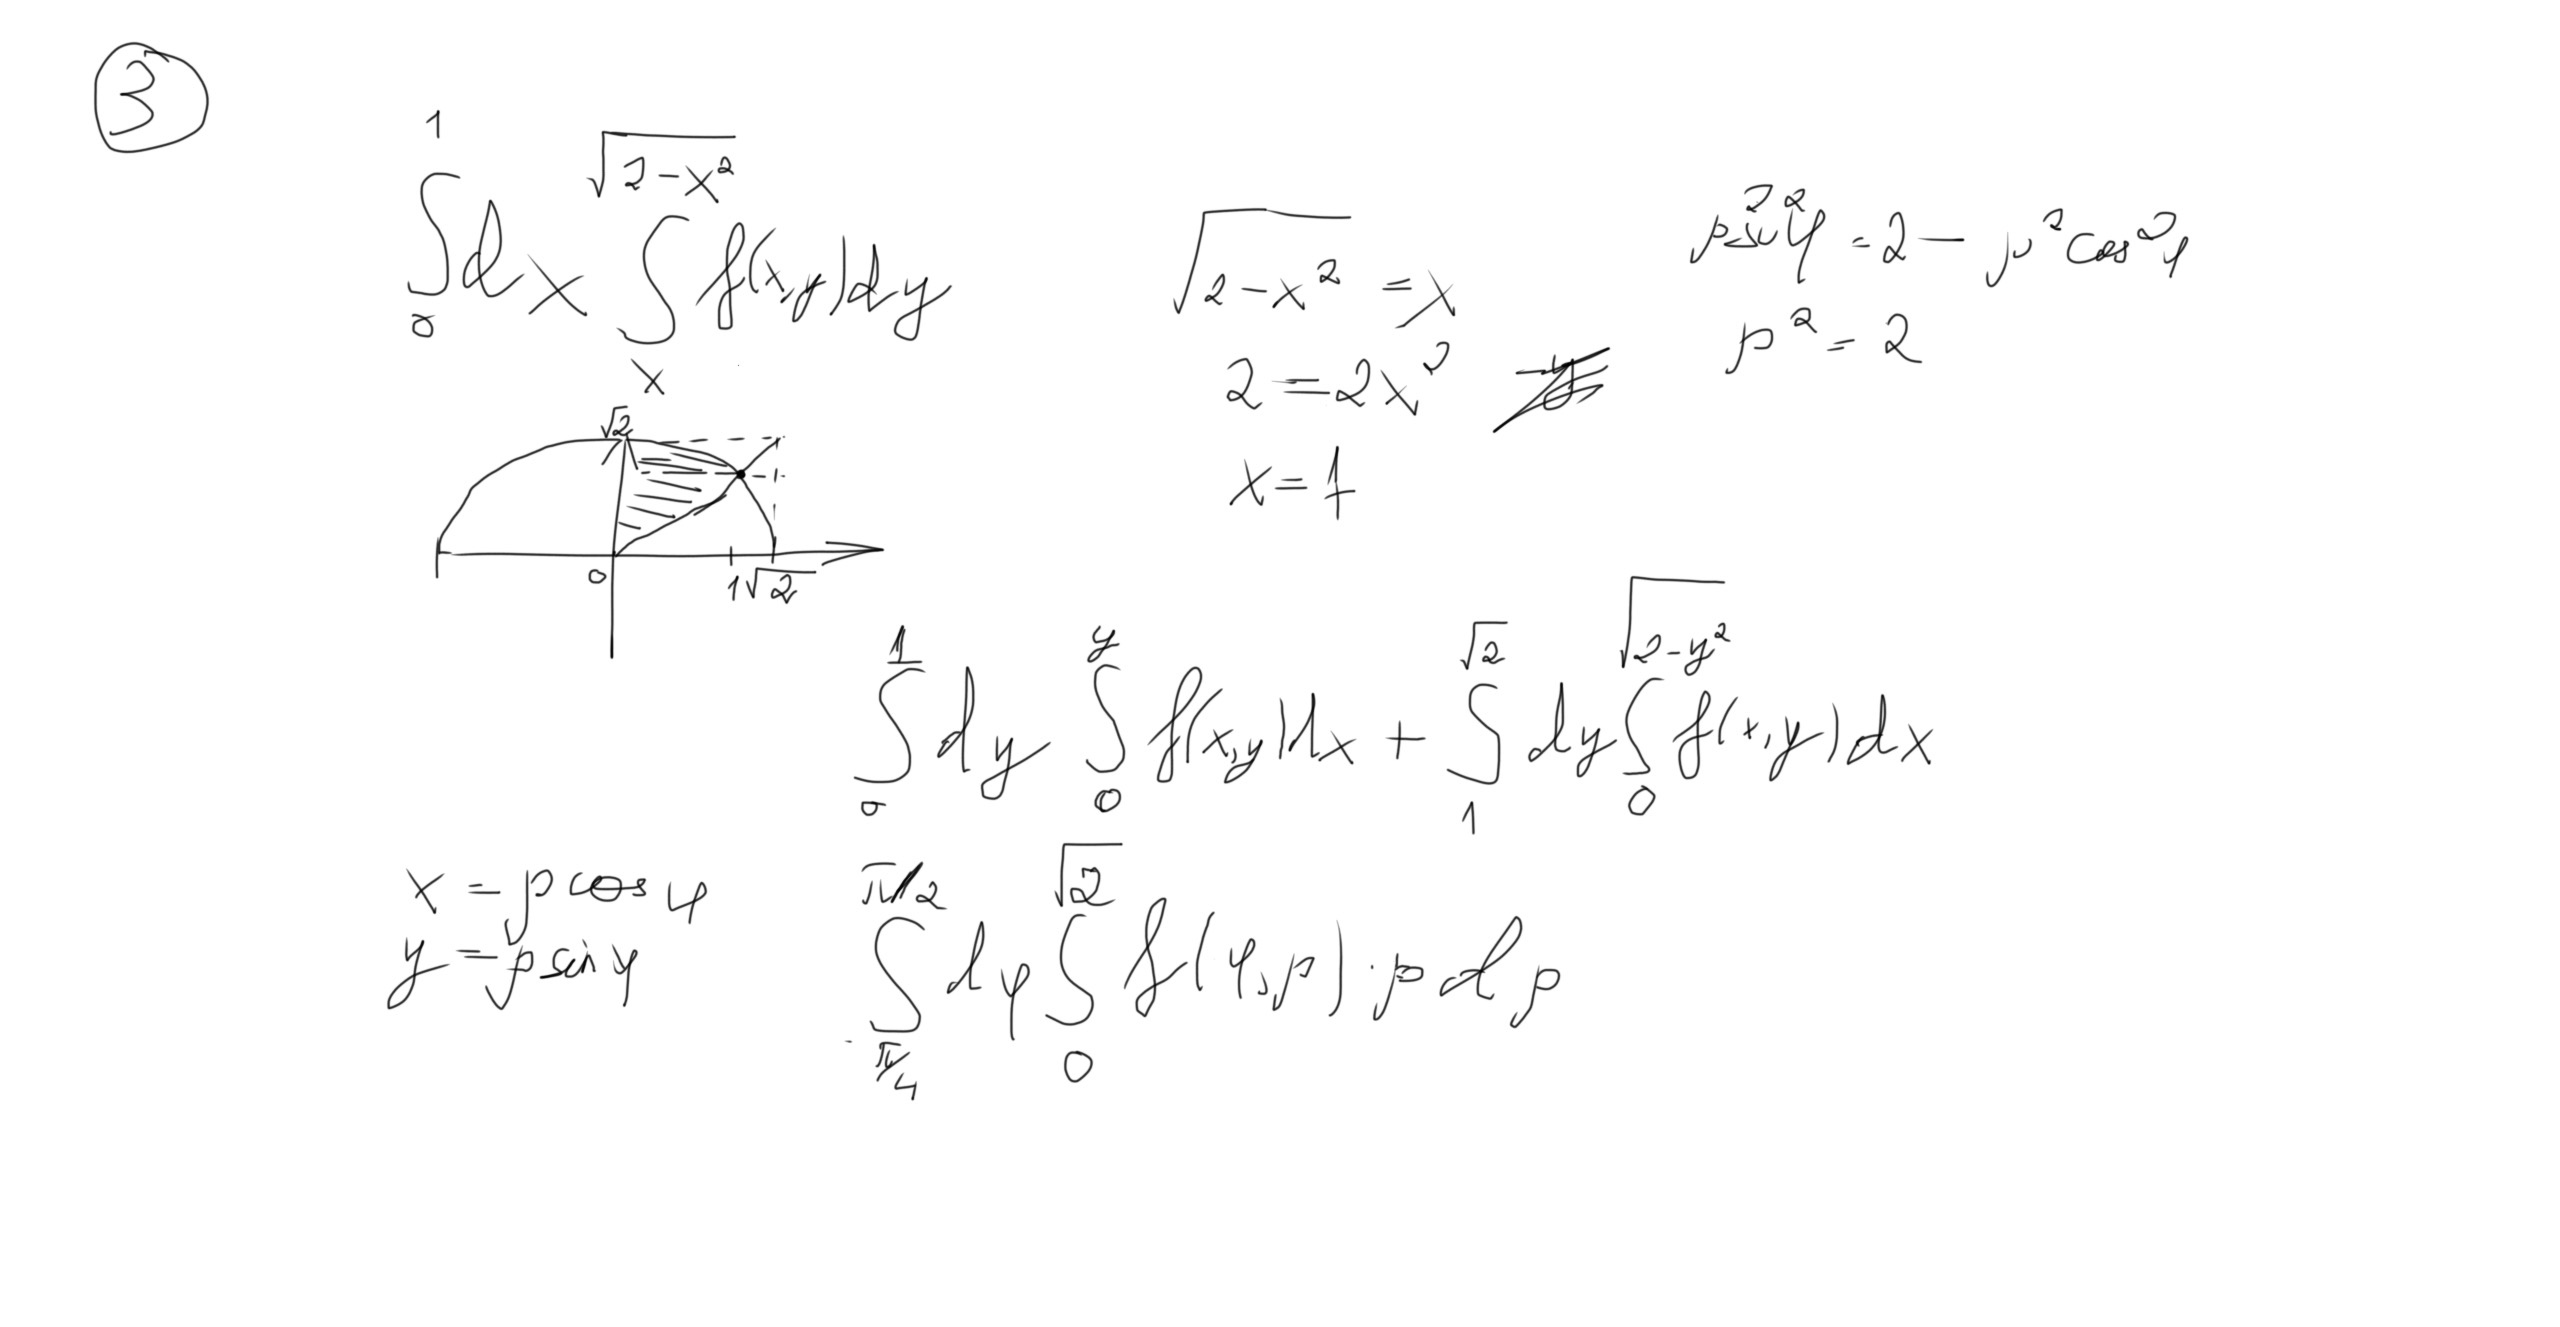 3
∫₀¹ dx ∫ₓ^√(2-x²) f(x,y)dy
√(2-x²) = x
2 = 2x²
x = 1
ρ²sin²φ = 2 - ρ²cos²φ
ρ² = 2
√2
0 1 √2
∫₀¹ dy ∫₀^y f(x,y)dx + ∫₁^√2 dy ∫₀^√(2-y²) f(x,y)dx
x = ρ cos φ
y = ρ sin φ
∫_π/4^π/2 dφ ∫₀^√2 f(φ,ρ)·ρ dρ